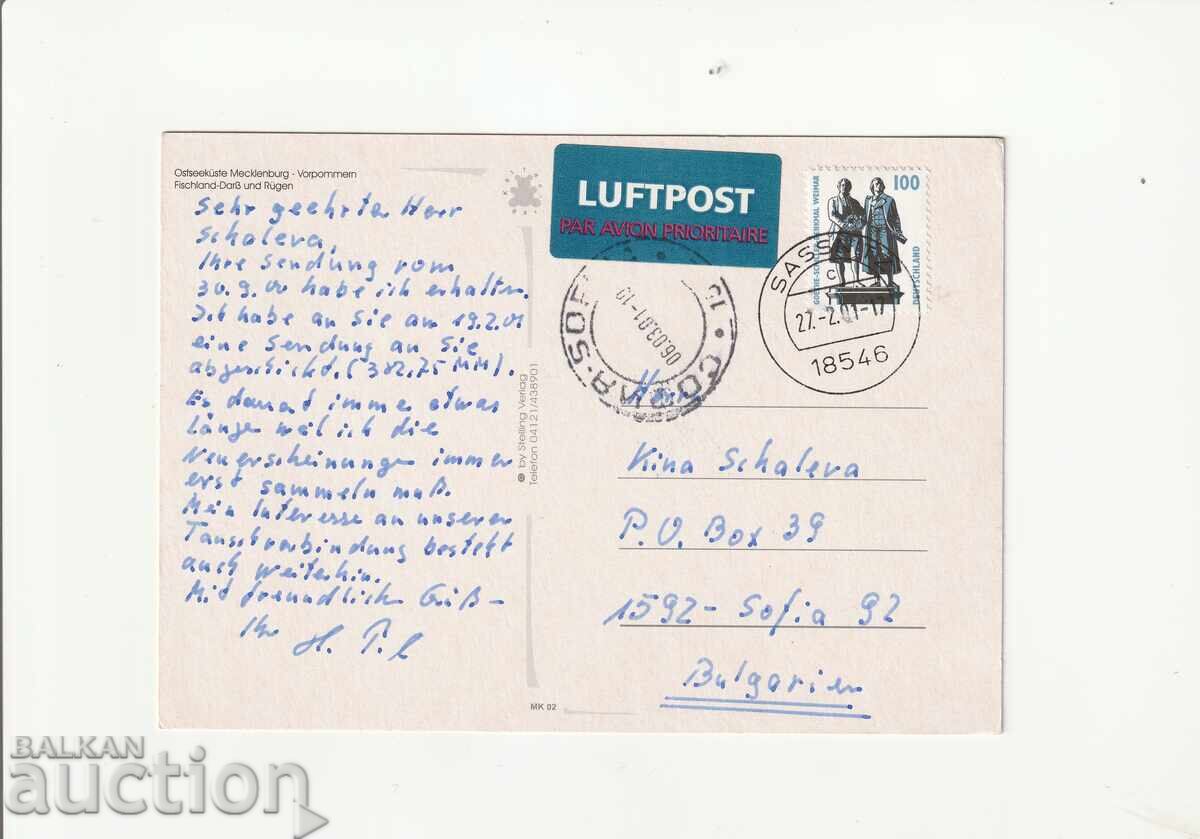 Ostseeküste Mecklenburg - Vorpommern
Fischland-Darß und Rügen
Sehr geehrte Herr
Schaleva,
Ihre Sendung vom
30.9.00 habe ich erhalten.
Ich habe an Sie am 19.2.01
eine Sendung an Sie
abgeschickt. (382.75 MM).
Es dauert imme etwas
länge weil ich die
Neuerscheinunge immer
erst sammeln muß.
Mein Interesse an unserer
Tauschverbindung besteht
auch weiterhin.
Mit freundlich Grüß-
Ihr H.
© by Stelling Verlag
Telefon 04121/438901
MK 02
LUFTPOST
PAR AVION PRIORITAIRE
100
GOETHE-SCHILLER-DENKMAL WEIMAR
DEUTSCHLAND
SASSNITZ
c
27.-2.01-17
18546
СОФИЯ-SOF
06.03.01-19
15
Herrn
Kina Schaleva
P.O. Box 39
1592- Sofia 92
Bulgarien
BALKAN
auction